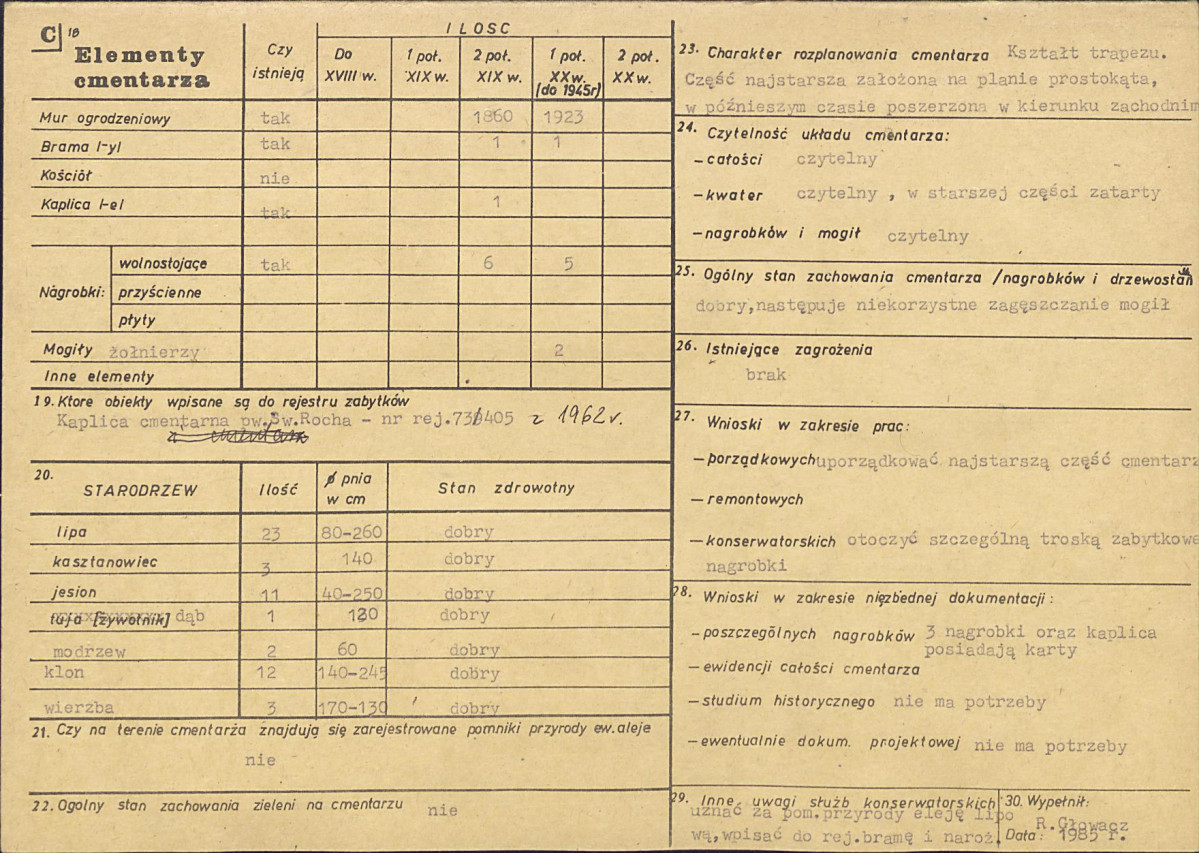 C 18 Elementy cmentarza
Czy istnieją
ILOSC
Do XVIII w.
1 poł. XIX w.
2 poł. XIX w.
1 poł. XX w. (do 1945r)
2 poł. XX w.
Mur ogrodzeniowy tak 1860 1923
Brama /-y/ tak 1 1
Kościół nie
Kaplica /-e/ tak 1
Nagrobki:
wolnostojące tak 6 5
przyścienne
płyty
Mogiły żołnierzy 2
Inne elementy
19. Ktore obiekty wpisane są do rejestru zabytków
Kaplica cmentarna pw.Św.Rocha - nr rej.73/405 z 1962 r.
20. STARODRZEW Ilość ø pnia w cm Stan zdrowotny
lipa 23 80-260 dobry
kasztanowiec 3 140 dobry
jesion 11 40-250 dobry
tuja [żywotnik] dąb 1 130 dobry
modrzew 2 60 dobry
klon 12 140-245 dobry
wierzba 3 170-130 dobry
21. Czy na terenie cmentarza znajdują się zarejestrowane pomniki przyrody ew. aleje
nie
22. Ogolny stan zachowania zieleni na cmentarzu nie
23. Charakter rozplanowania cmentarza Kształt trapezu.
Część najstarsza założona na planie prostokąta,
w późnieszym czasie poszerzona w kierunku zachodnim
24. Czytelność układu cmentarza:
- całości czytelny
- kwater czytelny , w starszej części zatarty
- nagrobków i mogił czytelny
25. Ogólny stan zachowania cmentarza /nagrobków i drzewostan
dobry,następuje niekorzystne zagęszczanie mogił
26. Istniejące zagrożenia
brak
27. Wnioski w zakresie prac:
- porządkowych uporządkować najstarszą część cmentarz
- remontowych
- konserwatorskich otoczyć szczególną troską zabytkowe
nagrobki
28. Wnioski w zakresie niezbednej dokumentacji:
- poszczególnych nagrobków 3 nagrobki oraz kaplica
posiadają karty
- ewidencji całości cmentarza
- studium historycznego nie ma potrzeby
- ewentualnie dokum. projektowej nie ma potrzeby
29. Inne uwagi służb konserwatorskich
uznać za pom.przyrody eleję lipo
wą,wpisać do rej.bramę i naroż.
30. Wypełnił:
R.Głowacz
Data: 1985 r.